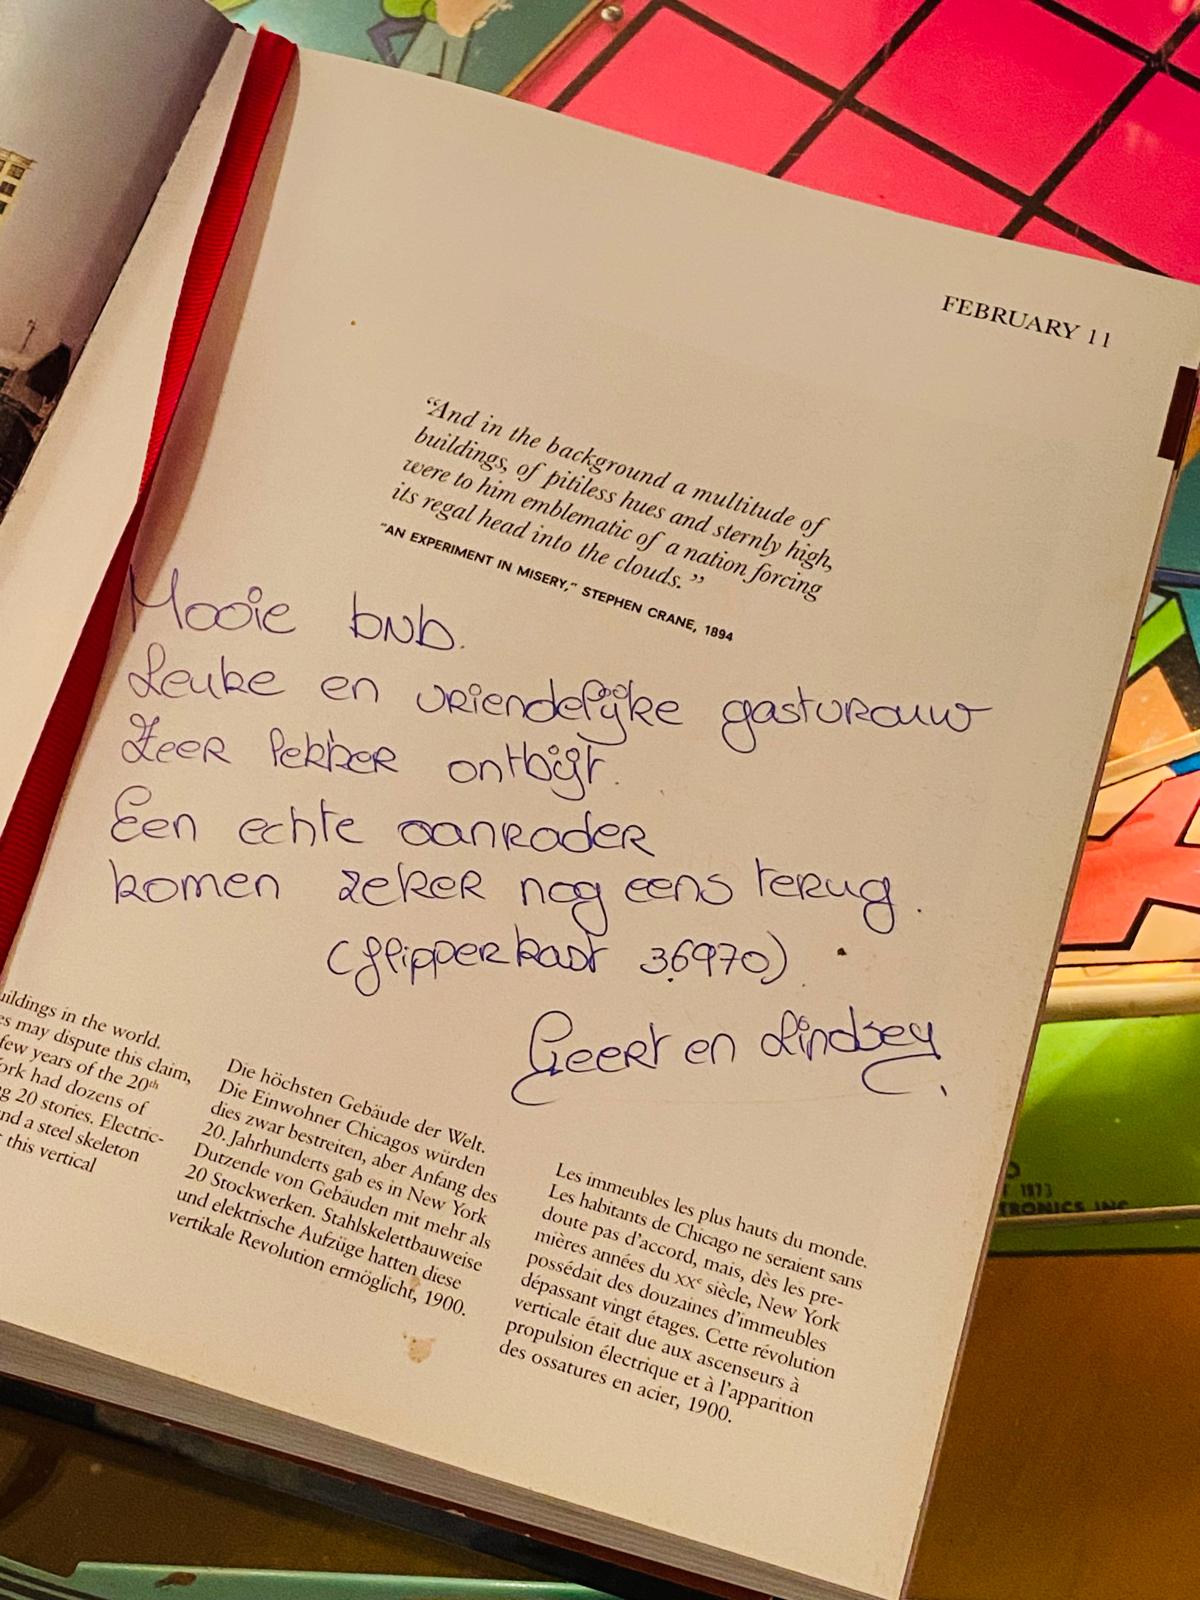 FEBRUARY 11
“And in the background a multitude of
buildings, of pitiless hues and sternly high,
were to him emblematic of a nation forcing
its regal head into the clouds.”
“AN EXPERIMENT IN MISERY,” STEPHEN CRANE, 1894
Mooie bnb.
Leuke en vriendelijke gastvrouw
Zeer lekker ontbijt.
Een echte aanrader
komen zeker nog eens terug.
(flipperkast 36970)
Geert en Lindsey.
uildings in the world.
es may dispute this claim,
few years of the 20th
ork had dozens of
g 20 stories. Electric-
nd a steel skeleton
this vertical
Die höchsten Gebäude der Welt.
Die Einwohner Chicagos würden
dies zwar bestreiten, aber Anfang des
20. Jahrhunderts gab es in New York
Dutzende von Gebäuden mit mehr als
20 Stockwerken. Stahlskelettbauweise
und elektrische Aufzüge hatten diese
vertikale Revolution ermöglicht, 1900.
Les immeubles les plus hauts du monde.
Les habitants de Chicago ne seraient sans
doute pas d’accord, mais, dès les pre-
mières années du XXe siècle, New York
possédait des douzaines d’immeubles
dépassant vingt étages. Cette révolution
verticale était due aux ascenseurs à
propulsion électrique et à l’apparition
des ossatures en acier, 1900.
1973
TRONICS INC.